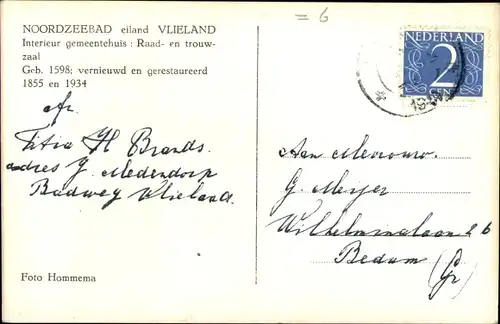 = 6
NOORDZEEBAD eiland VLIELAND
Interieur gemeentehuis : Raad- en trouw-
zaal
Geb. 1598; vernieuwd en gerestaureerd
1855 en 1934
NEDERLAND
2
CENT
Afz.
Titia H Brands.
adres G. Medendorp
Badweg Vlieland.
Aan Mevrouw.
G. Meijer
Wilhelminalaan 26
Bedum
(Gr)
Foto Hommema